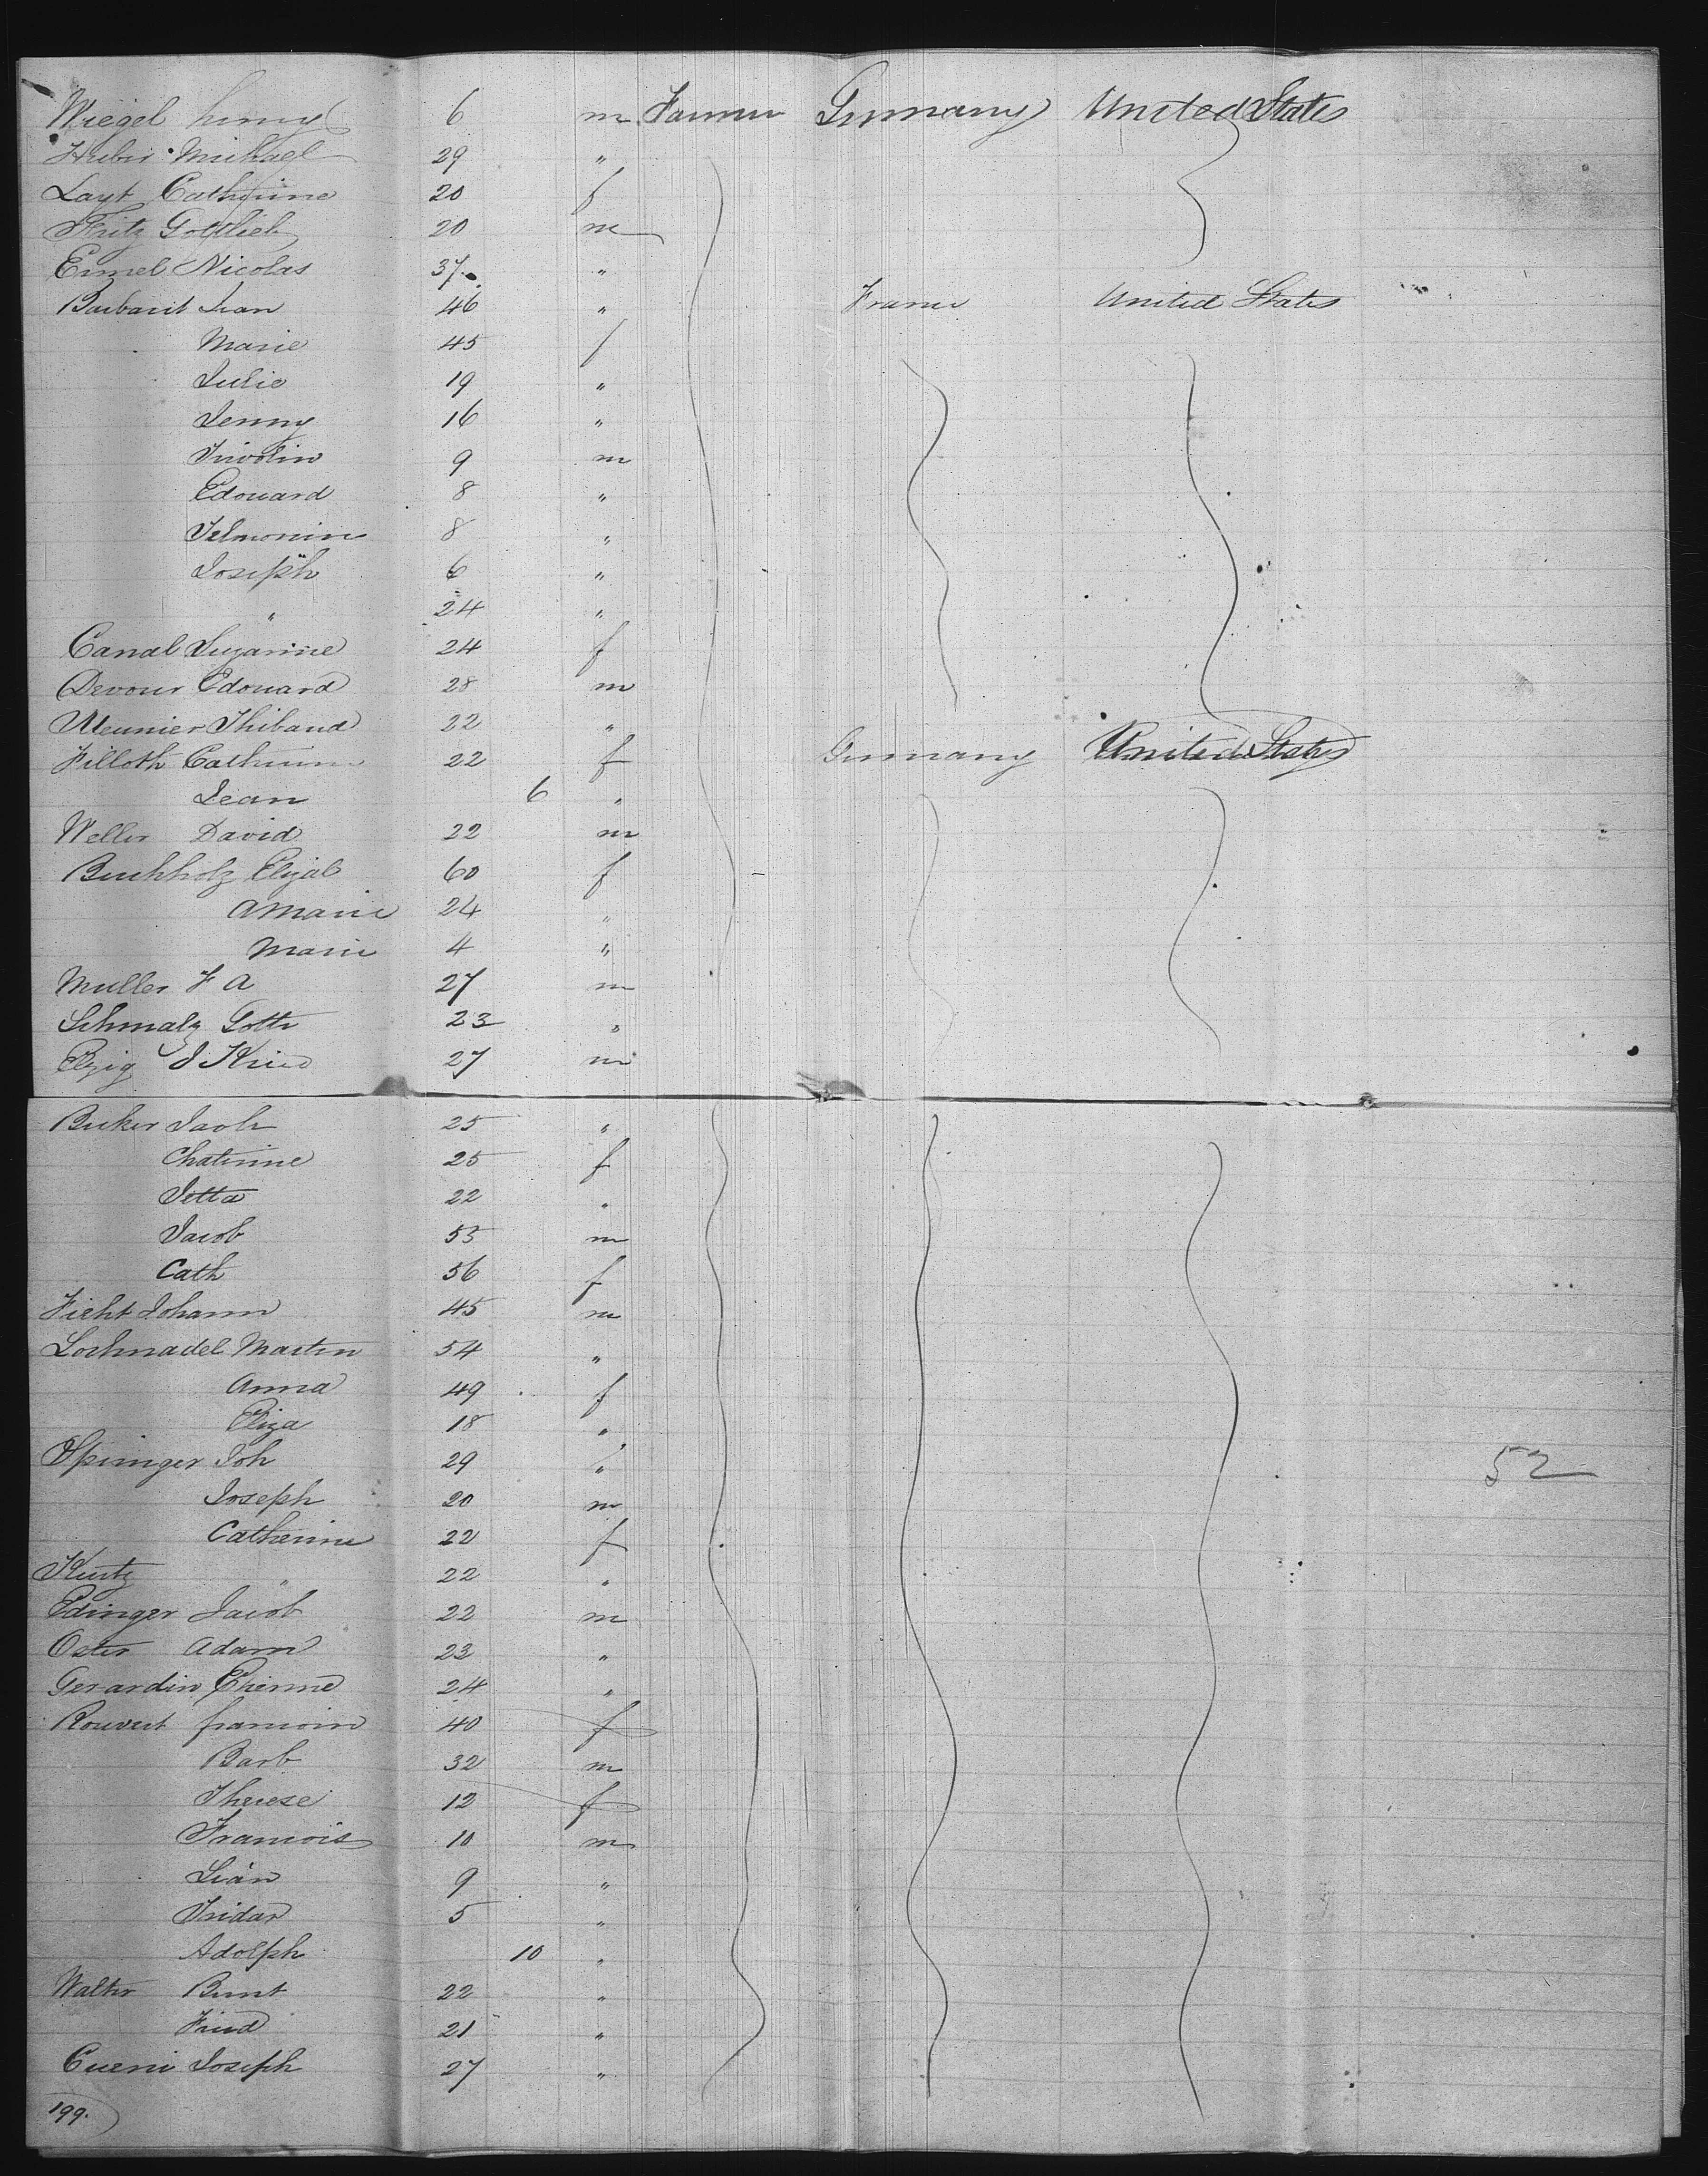 Wiegel henry 6 m Farmer Germany United States
Huber Michael 29 "
Layt Catherine 20 f
Fritz Gottlieb 20 m
Ermel Nicolas 37 "
Barbarit Jean 46 " France United States
Marie 45 f
Julie 19 "
Jenny 16 "
9 m
Edouard 8 "
8 "
Joseph 6 "
" 24 "
Canal Suzanne 24 f
Devour Edouard 28 m
Meunier Thibaud 22 "
Filloth Catherine 22 f Germany United States
Jean 6 "
Weller David 22 m
Buchholz Elizab 60 f
A Marie 24 "
Marie 4 "
Muller F A 27 m
Schmalz Gottl 23 "
27 m
Becker Jacob 25 "
Chaterine 25 f
Jetta 22 "
Jacob 55 m
Cath 56 f
Ficht Johann 45 m
Lochnadel Martin 54 "
Anna 49 f
Eliza 18 "
Springer Joh 29 "
Joseph 20 m 52
Catherine 22 f
Kurtz " 22 "
Edinger Jacob 22 m
Oster Adam 23 "
Gerardin Etienne 24 "
Rouvert francois 40 f
Barb 32 m
Therese 12 f
Francois 10 m
9 "
5 "
Adolph 10 "
Walter Bernt 22 "
Fried 21 "
Cueni Joseph 27 "
199.